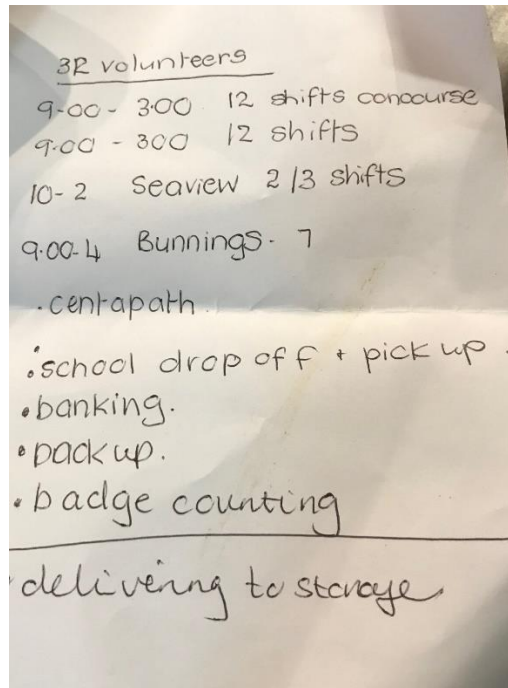 3R volunteers
9-00 - 3.00 12 shifts concourse
9.00 - 300 12 shifts
10-2 Seaview 2/3 shifts
9.00-4 Bunnings. 7
.centapath.
:school drop off + pick up.
•banking.
•pack up.
•badge counting
•delivering to storage.